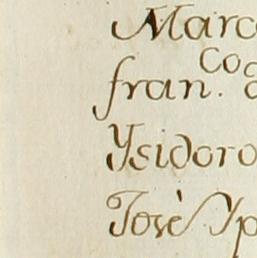 Marc
Co
fran.
Ysidoro
Josè Yp